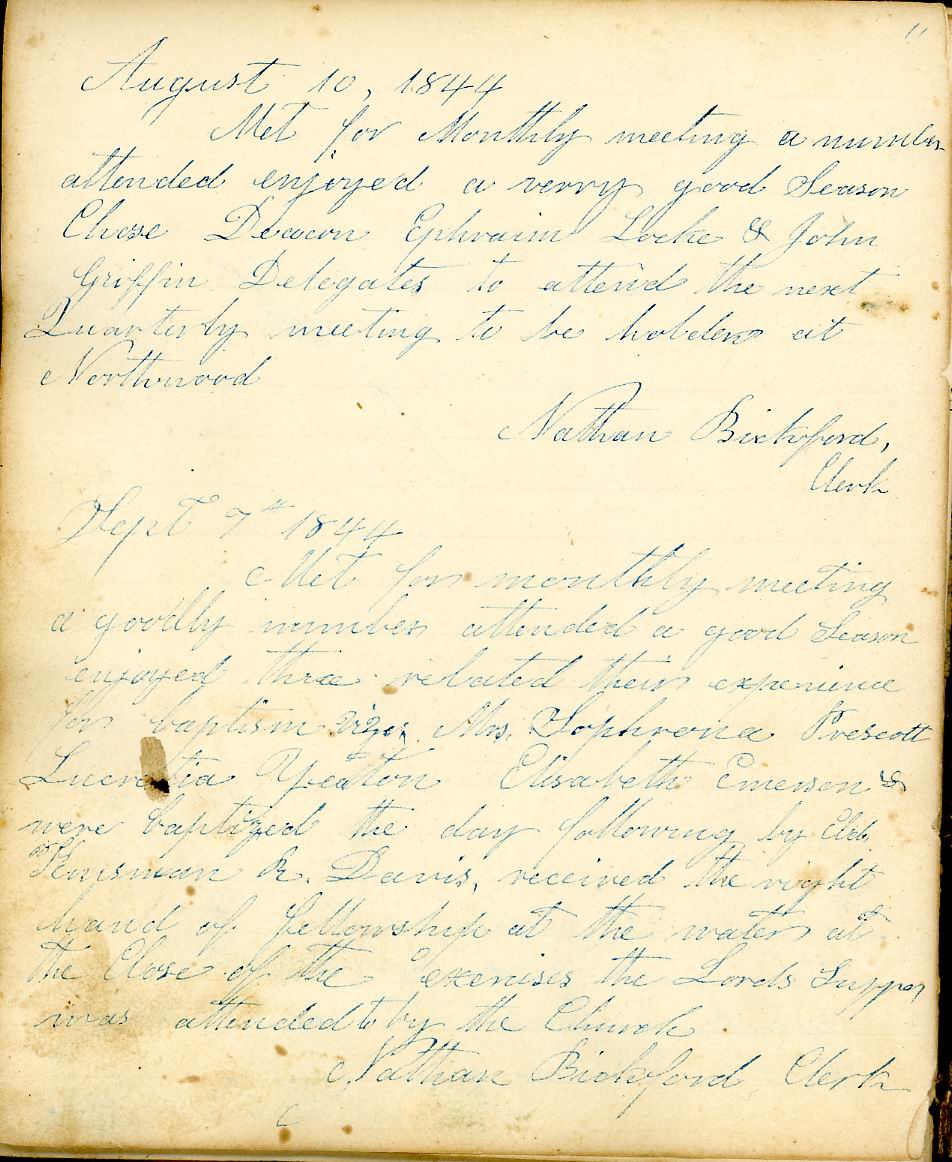 11
August 10, 1844
Met for Monthly meeting a number
attended enjoyed a verry good Season
Chose Deacon Ephraim Locke & John
Griffin Delegates to attend the next
Quarterly meeting to be holden at
Northwood
Nathan Bickford,
Clerk
Sept 7th 1844
Met for monthly meeting
a goodly number attended a good Season
enjoyed three related their experience
for baptism viz: Mrs. Sophrona Prescott
Lucretia Yeaton Elisabeth Emerson &
were baptized the day following by Eld.
Kinsman R. Davis, received the right
hand of fellowship at the water at
the Close of the exercises the Lords Supper
was attended to by the Church
Nathan Bickford, Clerk